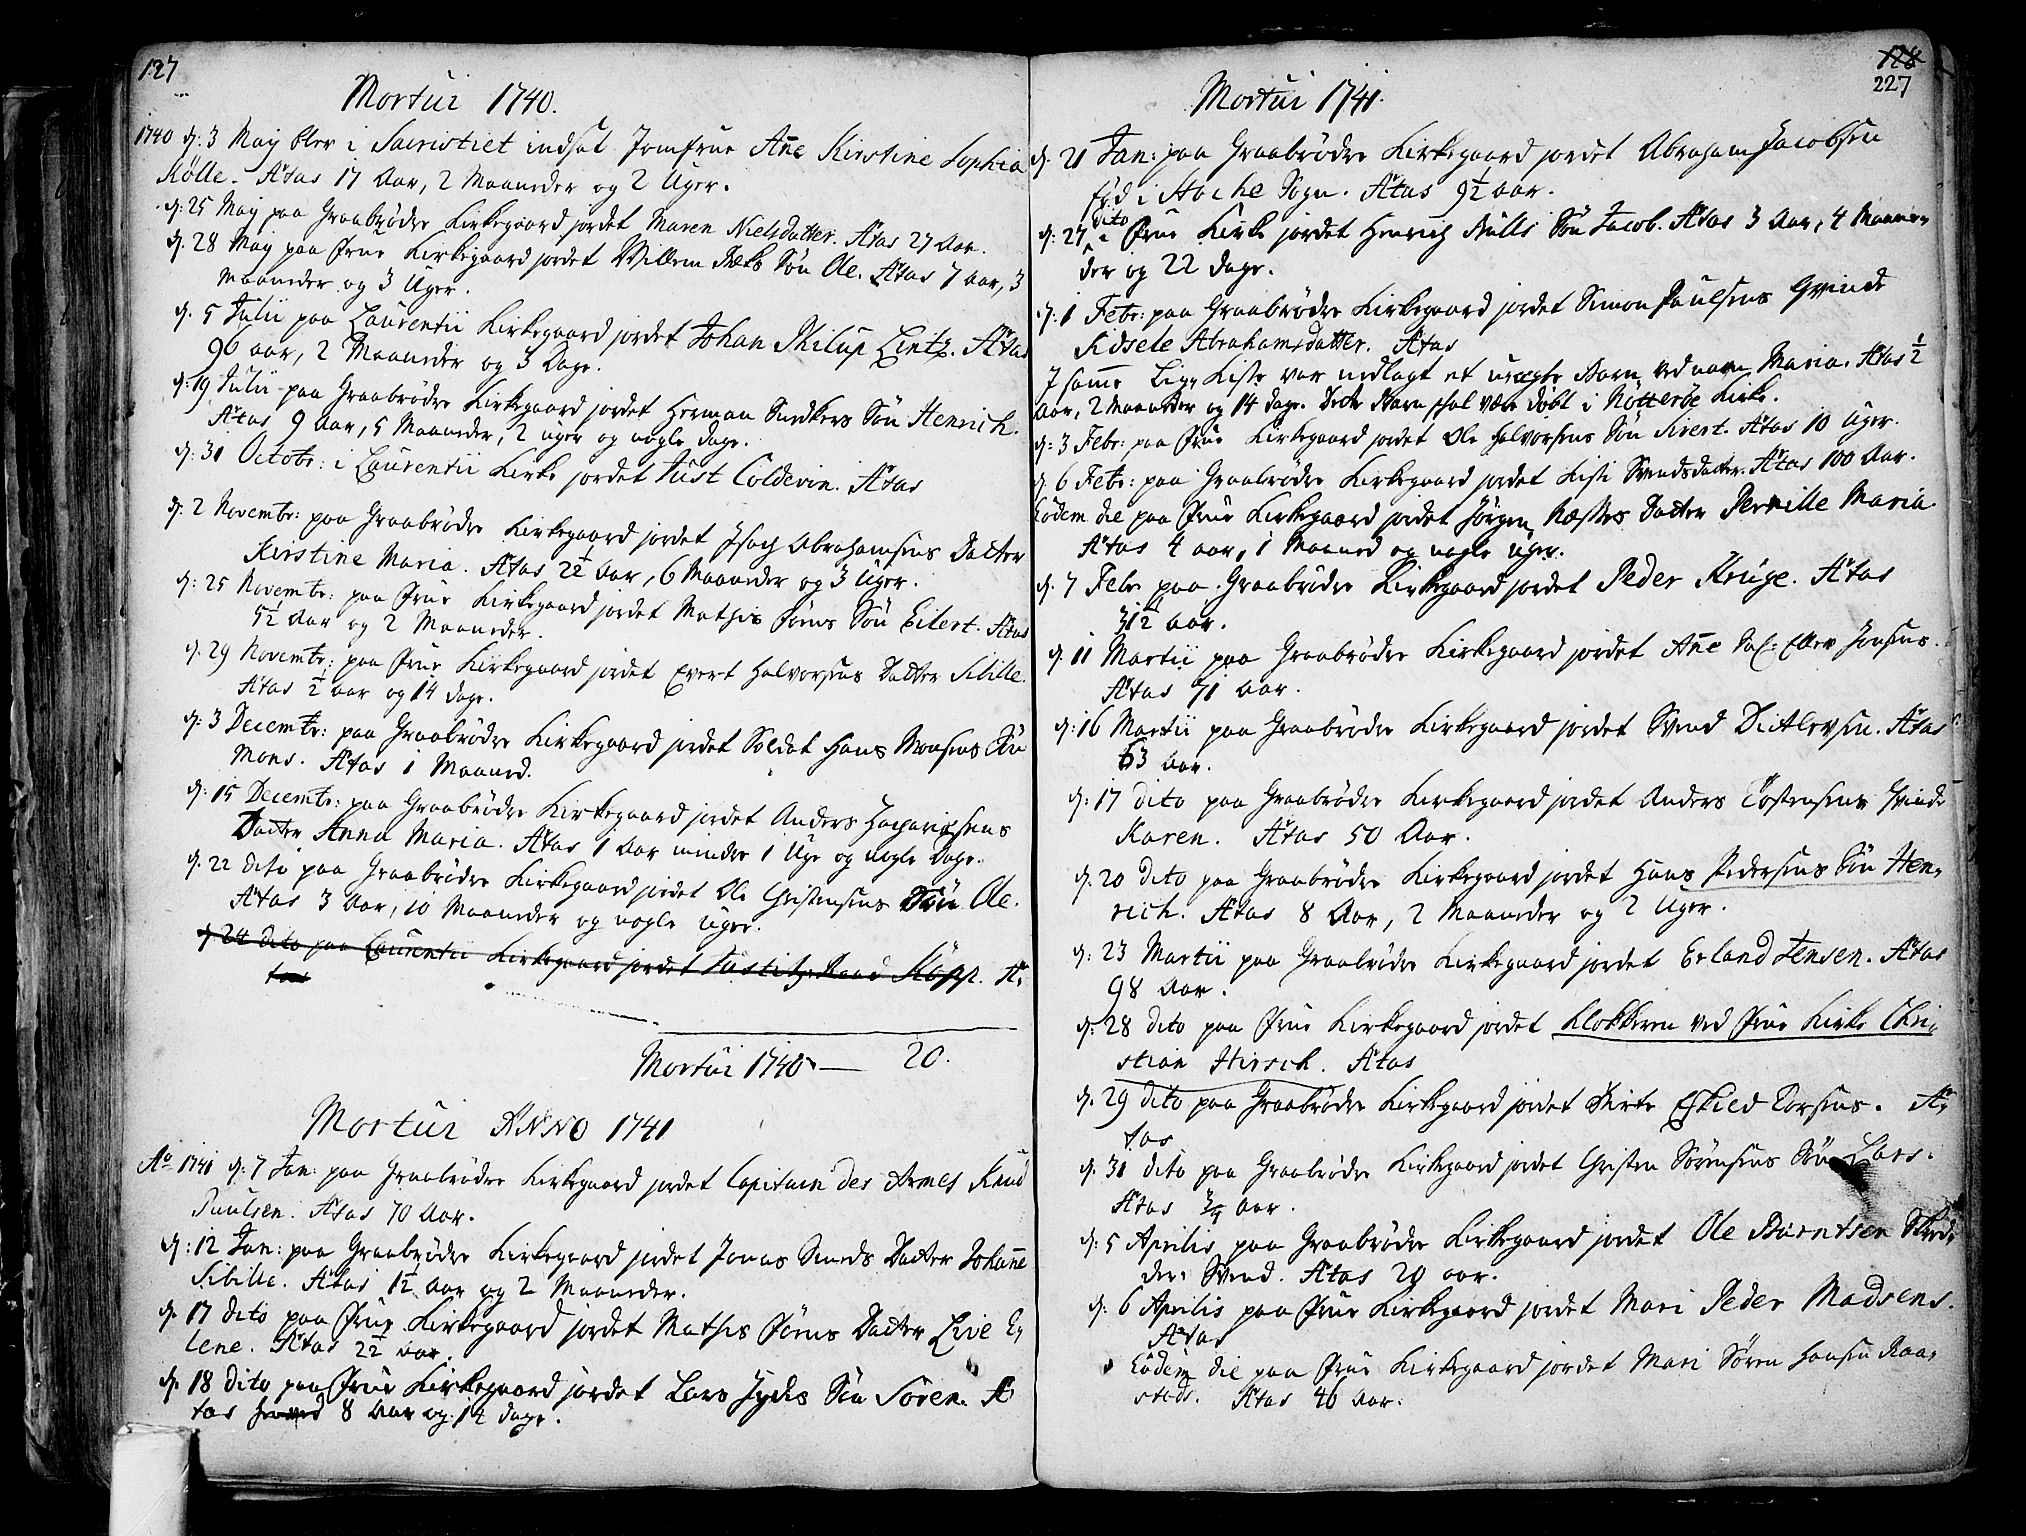 127
Mortui 1740.
1740 d: 3 Maij blev i Sacristiet indsat Jomfrue Añe Kirstine Sophia
Kölle. Ætas 17 Aar, 2 Maaneder og 2 Uger.
d: 25 Maij paa Graabrødre Kirkegaard jordet Maren Nielsdatter. Ætas 27 Aar.
d. 28 Maij paa Frue Kirkegaard jordet Willem Sön Ole. Ætas 7 aar, 3
Maaneder og 3 Uger.
d. 5 Julii paa Laurentii Kirkegaard jordet Johan Philip Lintz. Ætas
96 aar, 2 Maaneder og 3 Dage.
d: 19 Julii paa Graabrødre Kirkegaard jordet Herman Sön Henrich.
Ætas 9 Aar, 5 Maaneder, 2 uger og nogle dage.
d: 31 Octobr: i Laurentii Kirke jordet Just Coldevin. Ætas
d: 2 Novembr: paa Graabrødre Kirkegaard jordet Isach Abrahamsens Datter
Kirstine Maria. Ætas 2½ Aar, 6 Maaneder og 3 Uger.
d: 25 Novembr: paa Frue Kirkegaard jordet Mathis Sön Eilert. Ætas
5½ Aar og 2 Maaneder.
d. 29 Novembr: paa Frue Kirkegaard jordet Evert Halvorsens Datter Sibille.
Ætas ½ aar og 14 dage.
d: 3 Decembr: paa Graabrødre Kirkegaard jordet Soldat Hans Monsens Sön
Mons. Ætas 1 Maaned.
d: 15 Decembr: paa Graabrødre Kirkegaard jordet Anders Zachariæsens
Datter Anna Maria. Ætas 1 Aar mindre 1 Uge og nogle Dage.
d. 22 dito paa Graabrødre Kirkegaard jordet Ole Christensens Sön Ole.
Ætas 3 Aar, 10 Maaneder og nogle uger.
d 24 dito paa Laurentii Kirkegaard jordet Justitz Raad Köpp. Æ-
tas
Mortui 1740 — 20.
Mortui ANNO 1741
Ao 1741 d: 7 Jan: paa Graabrødre Kirkegaard jordet Capitain des Armes Knud
Paulsen. Ætas 70 Aar.
d: 12 Jan: paa Graabrødre Kirkegaard jordet Jonas Smeds Datter Johañe
Sibille. Ætas 1½ Aar og 2 Maaneder.
d. 17 dito paa Frue Kirkegaard jordet Mathis Datter Live E-
lene. Ætas 2½ aar.
d. 18 dito paa Frue Kirkegaard jordet Lars Jydes Sön Sören. Æ
tas 8 Aar og 14 dage.
128
227
Mortui 1741.
d. 21 Jan: paa Graabrødre Kirkegaard jordet Abraham Jacobsen
fød i Sogn. Ætas 9½ aar.
d: 27 dito i Frue Kirke jordet Henrich Bulls Sön Jacob. Ætas 3 Aar, 4 Maane-
der og 22 dage.
d: 1 Febr: paa Graabrødre Kirkegaard jordet Simon Paulsens Qvinde
Sidsele Abrahamsdatter. Ætas
I same Liig Kiste var nedlagt et uægte Barn ved navn Maria. Ætas ½
aar, 2 Maaneder og 14 dage. Dette Barn skal være døbt i Nötteröe Kirke.
d: 3 Febr: paa Frue Kirkegaard jordet Ole Halvorsens Sön Sivert. Ætas 10 Uger.
d. 6 Febr: paa Graabrødre Kirkegaard jordet Lisi Svendsdatter. Ætas 100 Aar.
Eodem die paa Frue Kirkegaard jordet Jörgen Datter Pernille Maria.
Ætas 4 aar, 1 Maaned og nogle Uger.
d. 7 Febr paa Graabrødre Kirkegaard jordet Peder Kruge. Ætas
31½ aar.
d. 11 Martii paa Graabrødre Kirkegaard jordet Añe Sal: Ellev Jonsens.
Ætas 71 Aar.
d: 16 Martii paa Graabrødre Kirkegaard jordet Svend Ditlevsen. Ætas
63 Aar.
d: 17 dito paa Graabrødre Kirkegaard jordet Anders Tostensens Qvinde
Karen. Ætas 50 Aar.
d. 20 dito paa Graabrødre Kirkegaard jordet Hans Pedersens Sön Hen-
rich. Ætas 8 Aar, 2 Maaneder og 2 Uger.
d: 23 Martii paa Graabrødre Kirkegaard jordet Erland Jensen. Ætas
98 Aar.
d: 28 dito paa Frue Kirkegaard jordet Klokkeren ved Frue Kirke Chri-
stian Hirsch. Ætas
d. 29 dito paa Graabrødre Kirkegaard jordet Eskild Torsens. Æ-
tas
d. 31 dito paa Graabrødre Kirkegaard jordet Christen Sörensens Sön Lars.
Ætas ¾ aar.
d: 5 Aprilis paa Graabrødre Kirkegaard jordet Ole Bærntsen Skred-
der Svend. Ætas 29 aar.
d: 6 Aprilis paa Frue Kirkegaard jordet Mari Peder Madsens.
Ætas
Eodem die paa Frue Kirkegaard jordet Mari Sören Hansen Raa-
steds. Ætas 46 Aar.